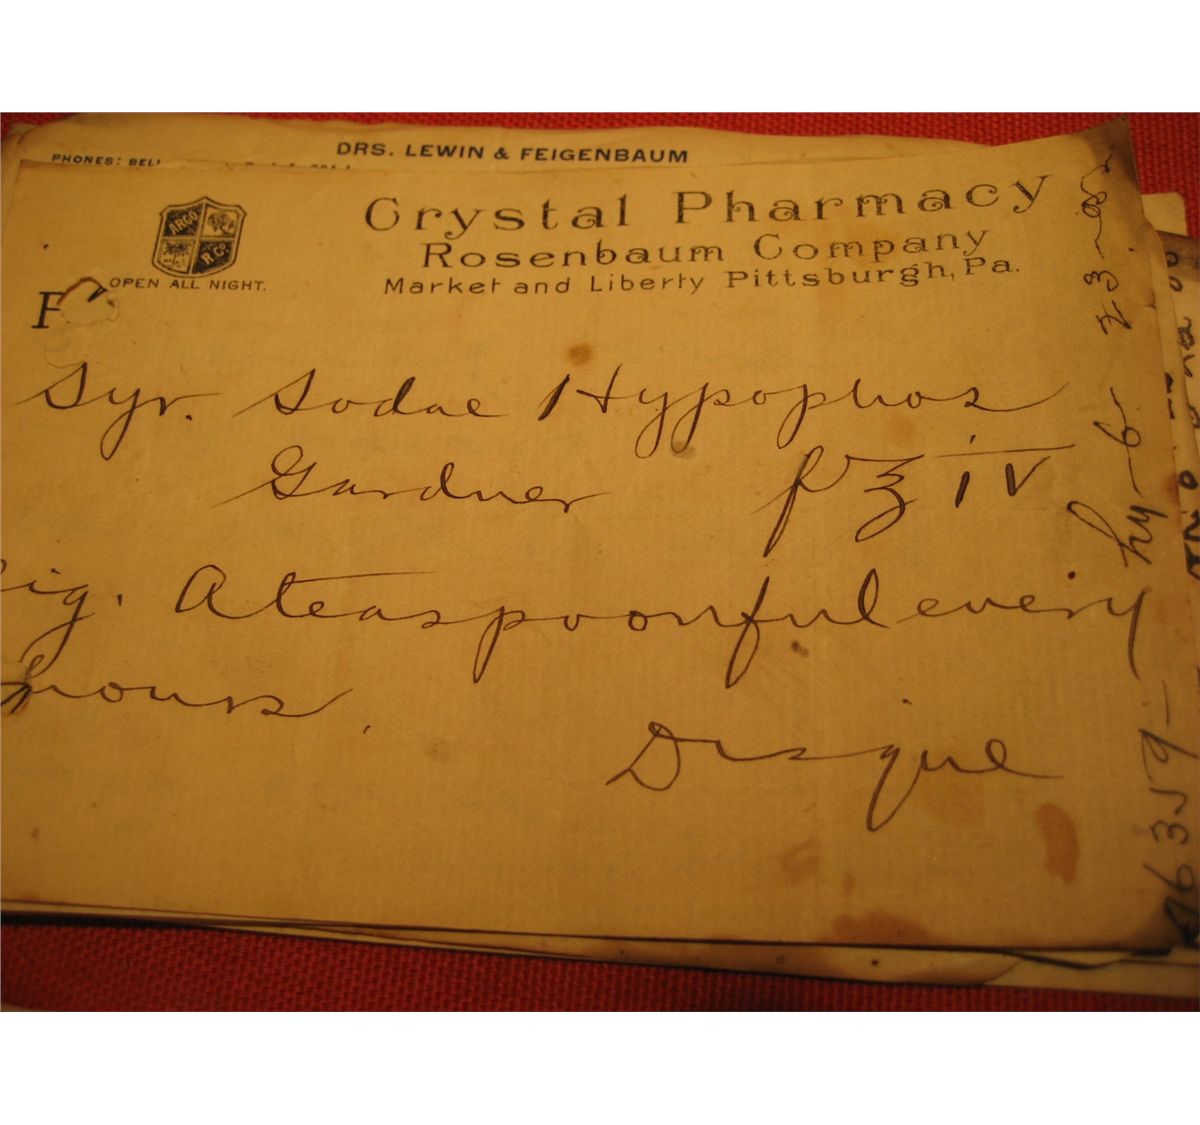 DRS. LEWIN & FEIGENBAUM
PHONES: BELL
ARGO
R Co
OPEN ALL NIGHT.
Crystal Pharmacy
Rosenbaum Company
Market and Liberty Pittsburgh, Pa.
Syr. Sodae Hypophos
Gardner f℥ iv
Sig. A teaspoonful every
hours.
Disque
46359- hy-6- 23-08